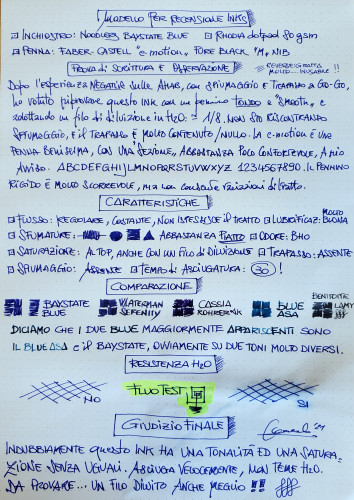 MODELLO PER RECENSIONE INKS
INCHIOSTRO: NOODLERS BAYSTATE BLUE RHODIA dotpad 80 gsm
PENNA: FABER-CASTELL "e-motion", PURE BLACK "M" NIB
PROVA di SCRITTURA E OSSERVAZIONE REVERSE: GRAFFIA
MOLTO.... INUSABILE!!
Dopo l'esperienza NEGATIVA sulle AHAB, con SPIUMAGGIO E TRAPASSO A GO-GO,
ho voluto riprovare questo INK con un pennino TONDO e "SMOOTH", e
adottando un filo di diluizione in H2O: 1/8. NON STO RISCONTRANDO
SPIUMAGGIO, E IL TRAPASSO È MOLTO CONTENUTO/NULLO. LA e-motion È UNA
PENNA BENISSIMA, CON UNA SEZIONE, ABBASTANZA POCO CONFORTEVOLE, A MIO
AVVISO. ABCDEFGHIJLMNOPQRSTUVWXYZ 1234567890. IL PENNINO
RIGIDO È MOLTO SCORREVOLE, MA NON CONSENTE VARIAZIONI DI TRATTO.
CARATTERISTICHE
FLUSSO: REGOLARE, COSTANTE, NON INTERROMPE IL TRATTO LUBRIFICAZ: MOLTO BUONA
SFUMATURE: ABBASTANZA PIATTO ODORE: BHO
SATURAZIONE: AL TOP, ANCHE CON UN FILO DI DILUIZIONE TRAPASSO: ASSENTE
SPIUMAGGIO: ASSENTE TEMPO di ASCIUGATURA: 30" !
COMPARAZIONE
BAYSTATE BLUE WATERMAN SERENITY CASSIA ROHRER&K BLUE ASA BENITOITE LAMY
DICIAMO CHE I DUE BLUE MAGGIORMENTE APPARISCENTI SONO
IL BLUE ASA e il BAYSTATE, OVVIAMENTE SU DUE TONI MOLTO DIVERSI.
RESISTENZA H2O
NO FLUO TEST SI
GIUDIZIO FINALE
INDUBBIAMENTE QUESTO INK HA UNA TONALITÀ ED UNA SATURA-
ZIONE SENZA UGUALI. ASCIUGA VELOCEMENTE, NON TEME H2O.
DA PROVARE... UN FILO DILUITO ANCHE MEGLIO!!